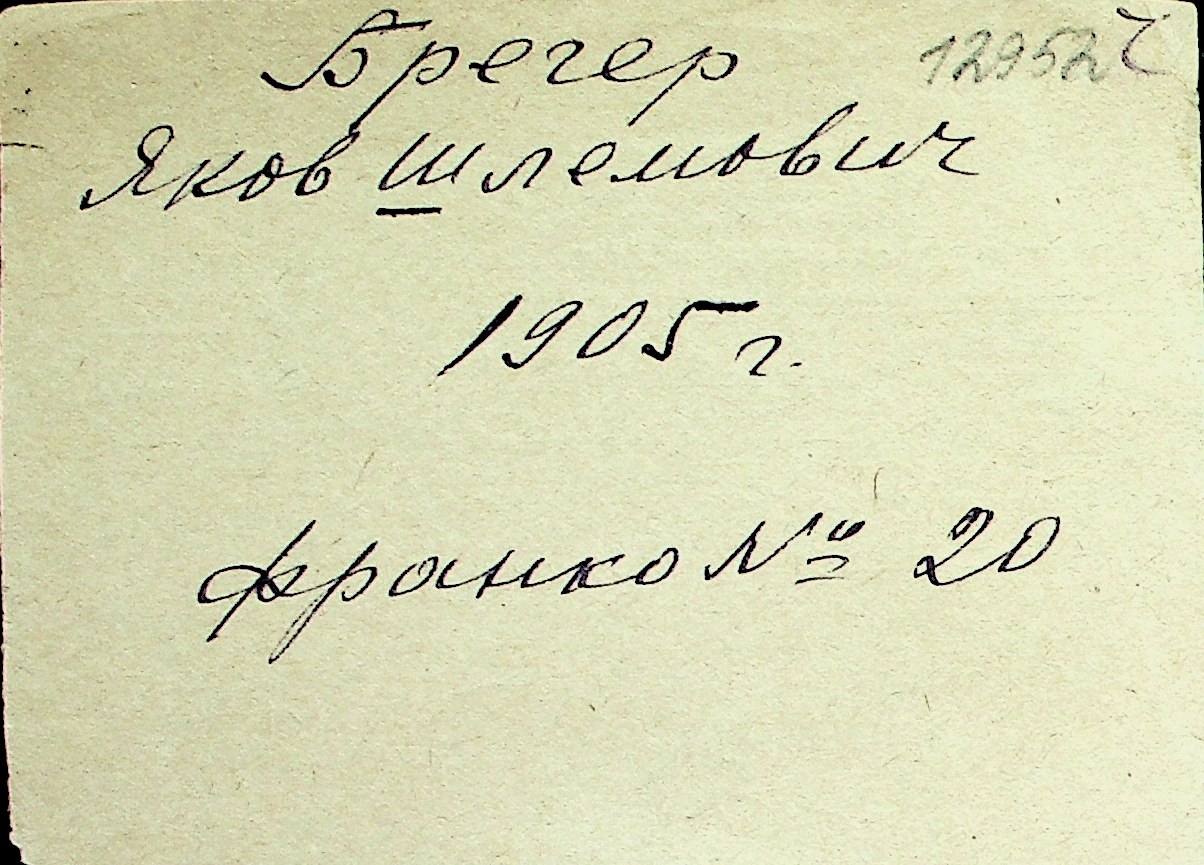 Брегер 12952 Ч
Яков Шлемович
1905 г.
Франко № 20